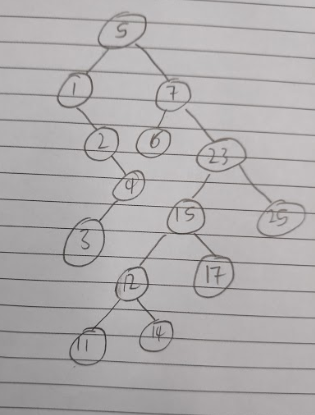 5
1 7
2 6 23
4 15 25
3 17
12
11 14